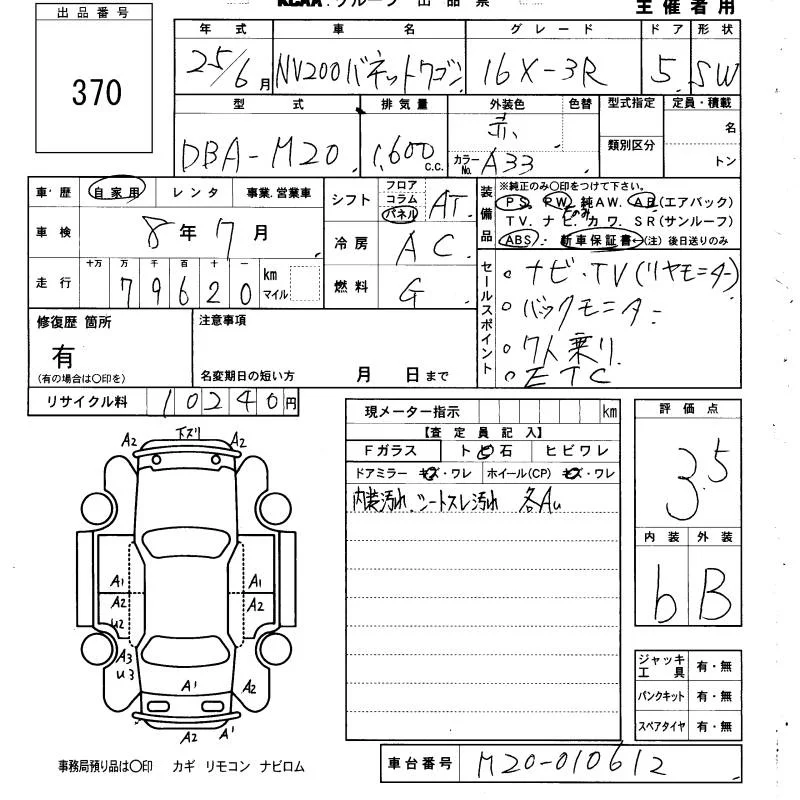 出品番号
370
KCAA.グループ 出品票
主催者用
年式 車名 グレード ドア 形状
25/6月 NV200バネットワゴン 16X-3R 5 SW
型式 排気量 外装色 色替 型式指定 定員・積載
DBA-M20 1,600c.c. 赤 類別区分 名
カラーNo. A33 トン
車・歴 自家用 レンタ 事業.営業車
車検 8年7月
走行 十万 万 千 百 十 一
79620 km マイル
シフト フロア コラム パネル AT
冷房 AC
燃料 G
装備品 ※純正のみ〇印をつけて下さい。
PS. PW. 純AW. AB(エアバック)
TV. ナビ. カワ. SR(サンルーフ)
ABS. 新車保証書←(注)後日送りのみ
セールスポイント
。ナビ・TV(リヤモニター)
。バックモニター
。7人乗り
。ETC
修復歴 箇所
有
(有の場合は〇印を)
注意事項
名変期日の短い方 月 日まで
リサイクル料 10240円
現メーター指示 km
【査定員記入】
Fガラス トビ石 ヒビワレ
ドアミラー キズ・ワレ ホイール(CP) キズ・ワレ
内装汚れ、シートスレ汚れ 各Au
評価点
3.5
内装 外装
b B
ジャッキ工具 有・無
パンクキット 有・無
スペアタイヤ 有・無
A2 下ズリ A2
A1 A1
A2 A2
U2
A3
U3 A1 A2
A2 A1
事務局預り品は〇印 カギ リモコン ナビロム
車台番号 M20-010612